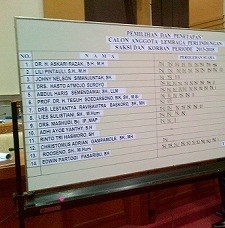 PEMILIHAN DAN PENETAPAN
CALON ANGGOTA LEMBAGA PERLINDUNGAN
SAKSI DAN KORBAN PERIODE 2013-2018
NO. NAMA PEROLEHAN SUARA
1 DR. H. ASKARI RAZAK, SH., MH
2 LILI PINTAULI, SH., MH
3 JOHNY NELSON SIMANJUNTAK, SH
4 DRS. HASTO ATMOJO SUROYO
5 ABDUL HARIS SEMENDAWAI, SH., LLM
6 PROF. DR. H. TEGUH SOEDARSONO, SIK, SH., M.Si
7 DRS. LESTANTYA
8 LIES SULISTIANI, SH., M.Hum
9 DRS. MASHUDI,
10 ADHI AYOE YANTHY, SH
11 RINTO TRI HASWORO, SH
12 CHRISTOMUS ADRIAN SH., MH
13 ROOSENO, SH., M.Hum
14 EDWIN PARTOGI PASARIBU, SH